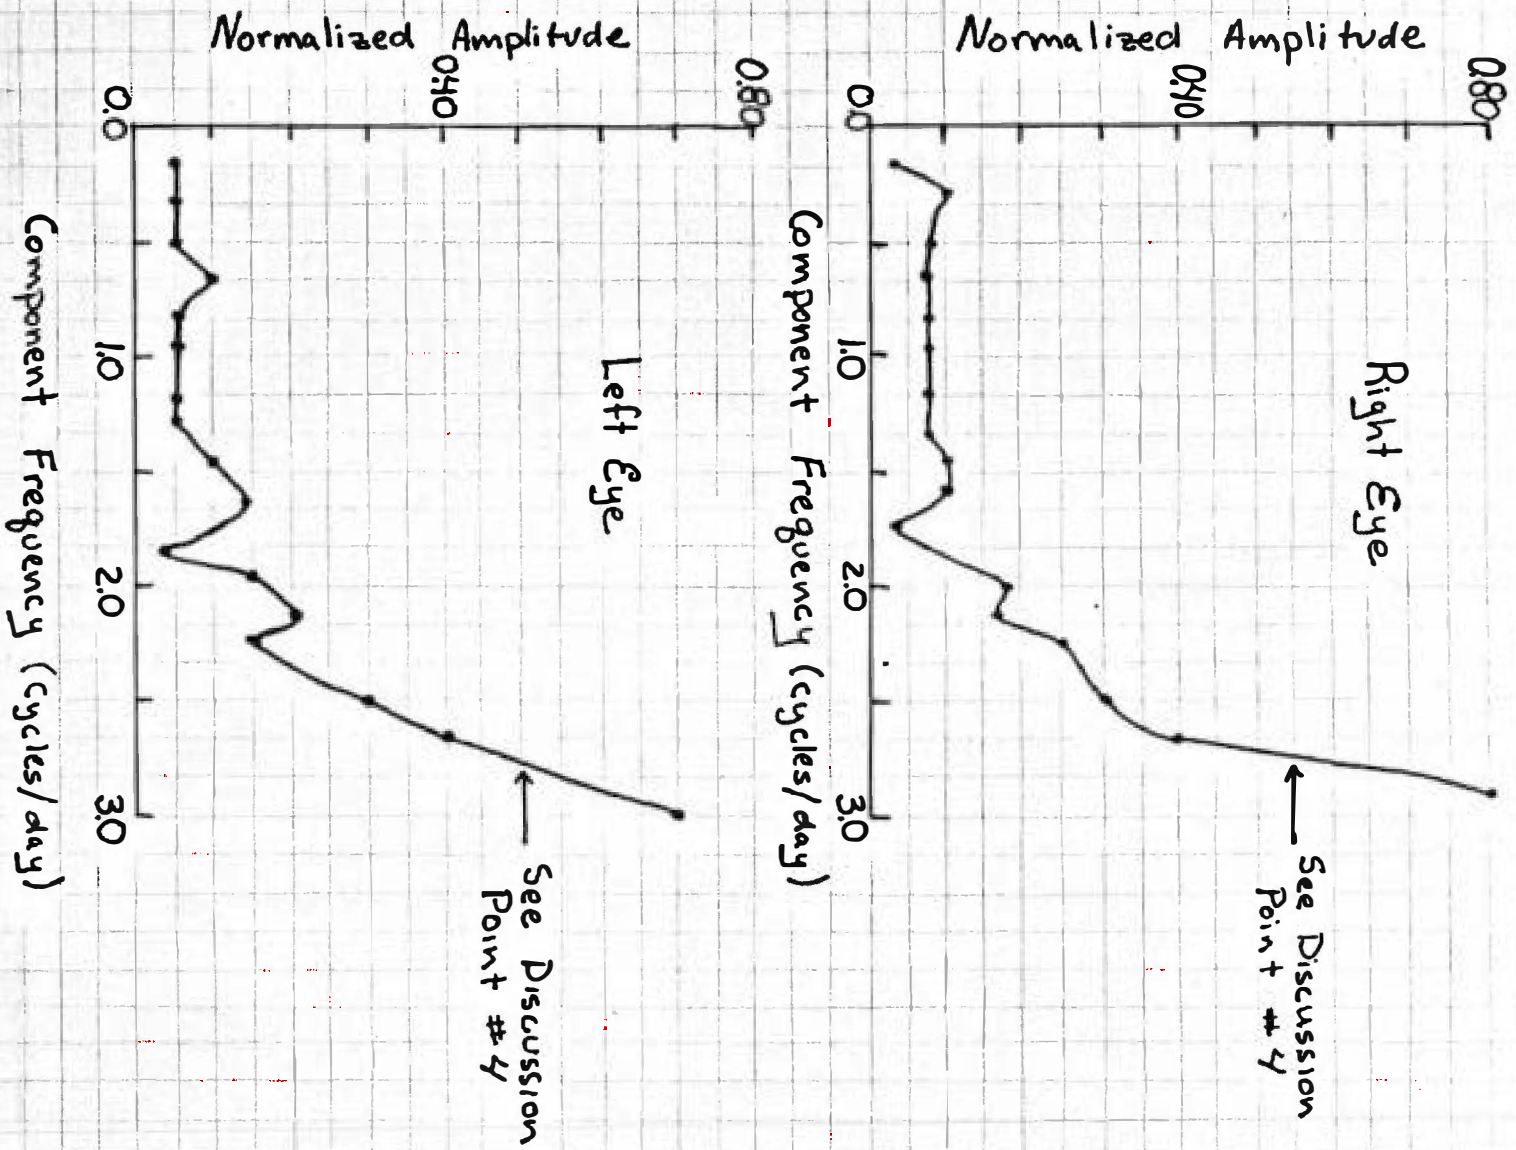 Right Eye
Normalized Amplitude
0.80
0.40
0.0
1.0
2.0
3.0
Component Frequency (cycles/day)
See Discussion
Point #4
Left Eye
Normalized Amplitude
0.80
0.40
0.0
1.0
2.0
3.0
Component Frequency (cycles/day)
See Discussion
Point #4